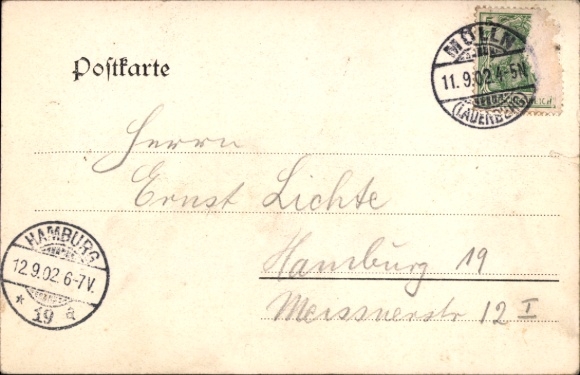 Postkarte
MÖLLN
11.9.02.4-5N
(LAUENBURG)
Herrn
Ernst Lichte
Hamburg 19
Meissnerstr 12 I
HAMBURG
12.9.02.6-7V.
* 19 a